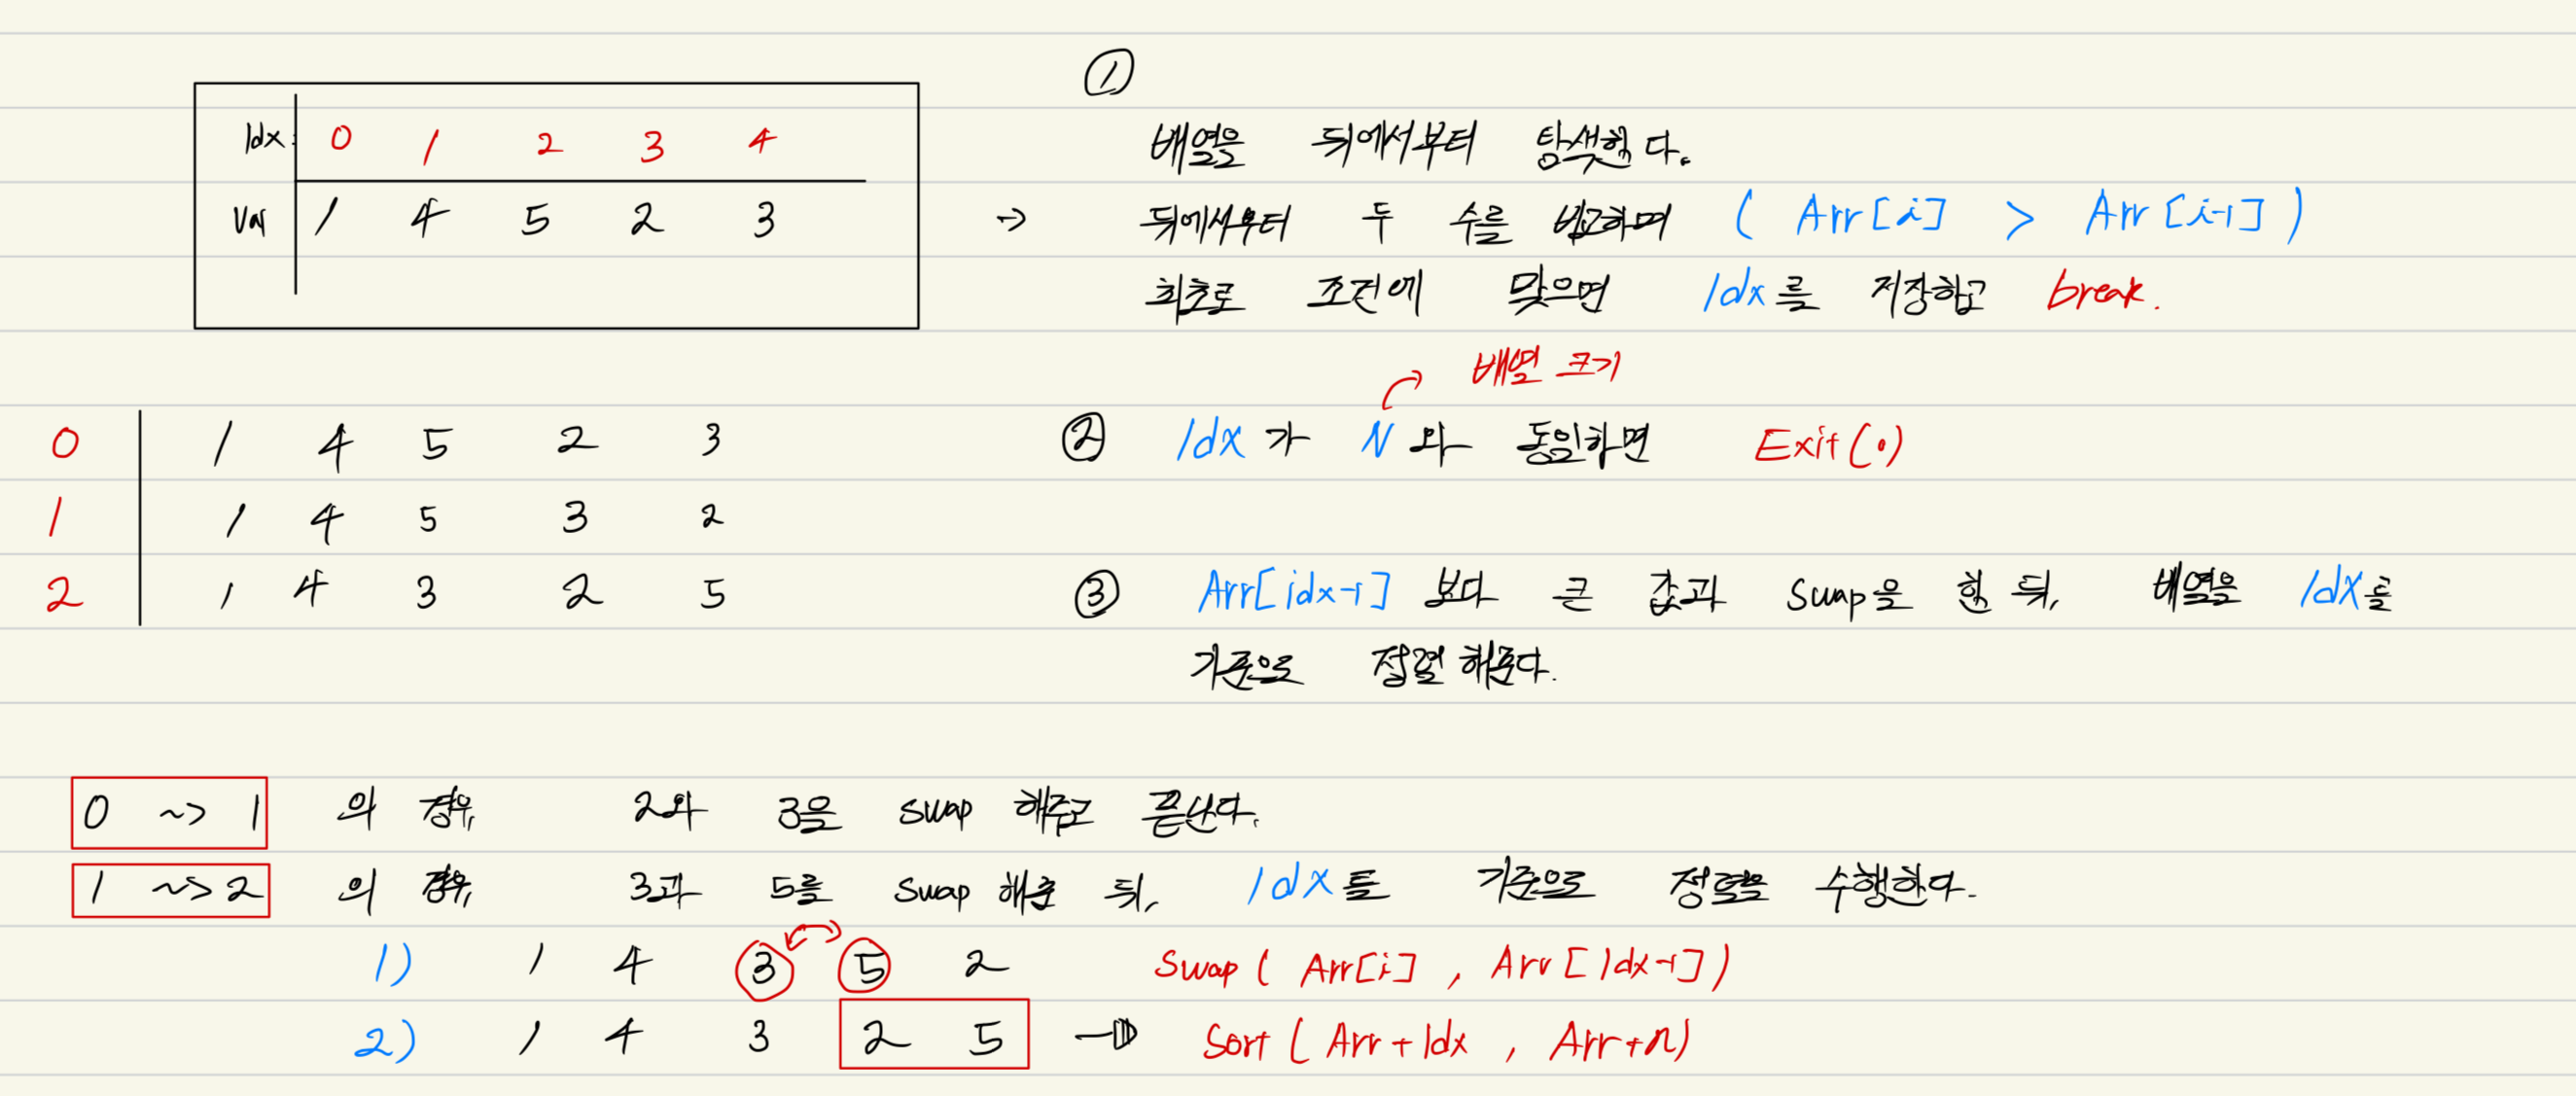 ①
Idx: 0 1 2 3 4
Var 1 4 5 2 3
배열을 뒤에서부터 탐색한다.
→ 뒤에서부터 두 수를 비교하며 ( Arr[i] > Arr[i-1] )
최초로 조건에 맞으면 Idx를 저장하고 break.
배열 크기
② Idx가 N와 동일하면 Exit(0)
0 1 4 5 2 3
1 1 4 5 3 2
2 1 4 3 2 5
③ Arr[idx-1] 보다 큰 값과 swap을 한 뒤, 배열을 Idx를
기준으로 정렬 해준다.
0 ~> 1 의 경우, 2와 3을 swap 해주고 끝난다.
1 ~> 2 의 경우, 3과 5를 swap 해준 뒤, Idx를 기준으로 정렬을 수행한다.
1) 1 4 3 5 2 Swap ( Arr[i] , Arr[Idx-1] )
2) 1 4 3 2 5 → Sort ( Arr+Idx , Arr+n)